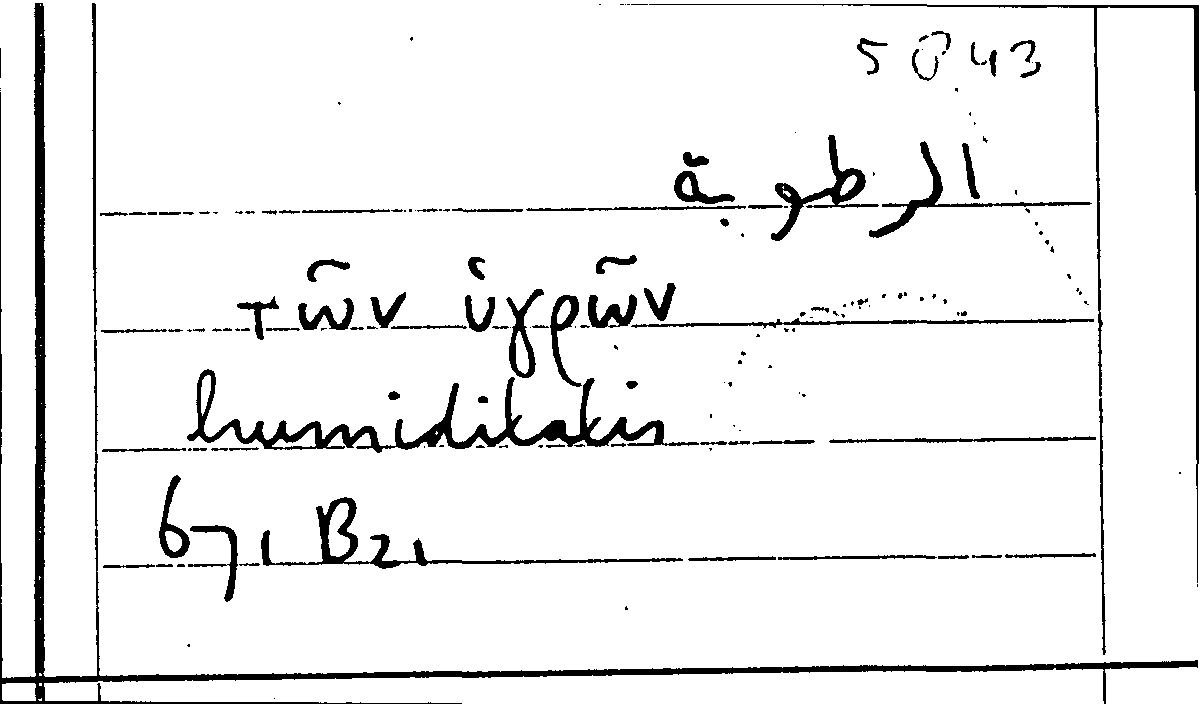 5043
الرطوبة
τῶν ὑγρῶν
humiditatis
671 B21